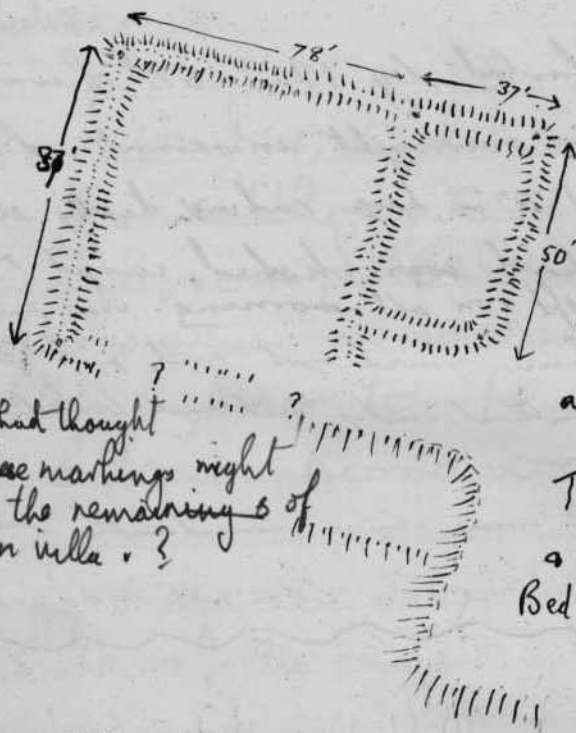 78'
37'
50'
?
?
had thought
markings might
the remaining s of
villa . ?
a
T
a
Bed